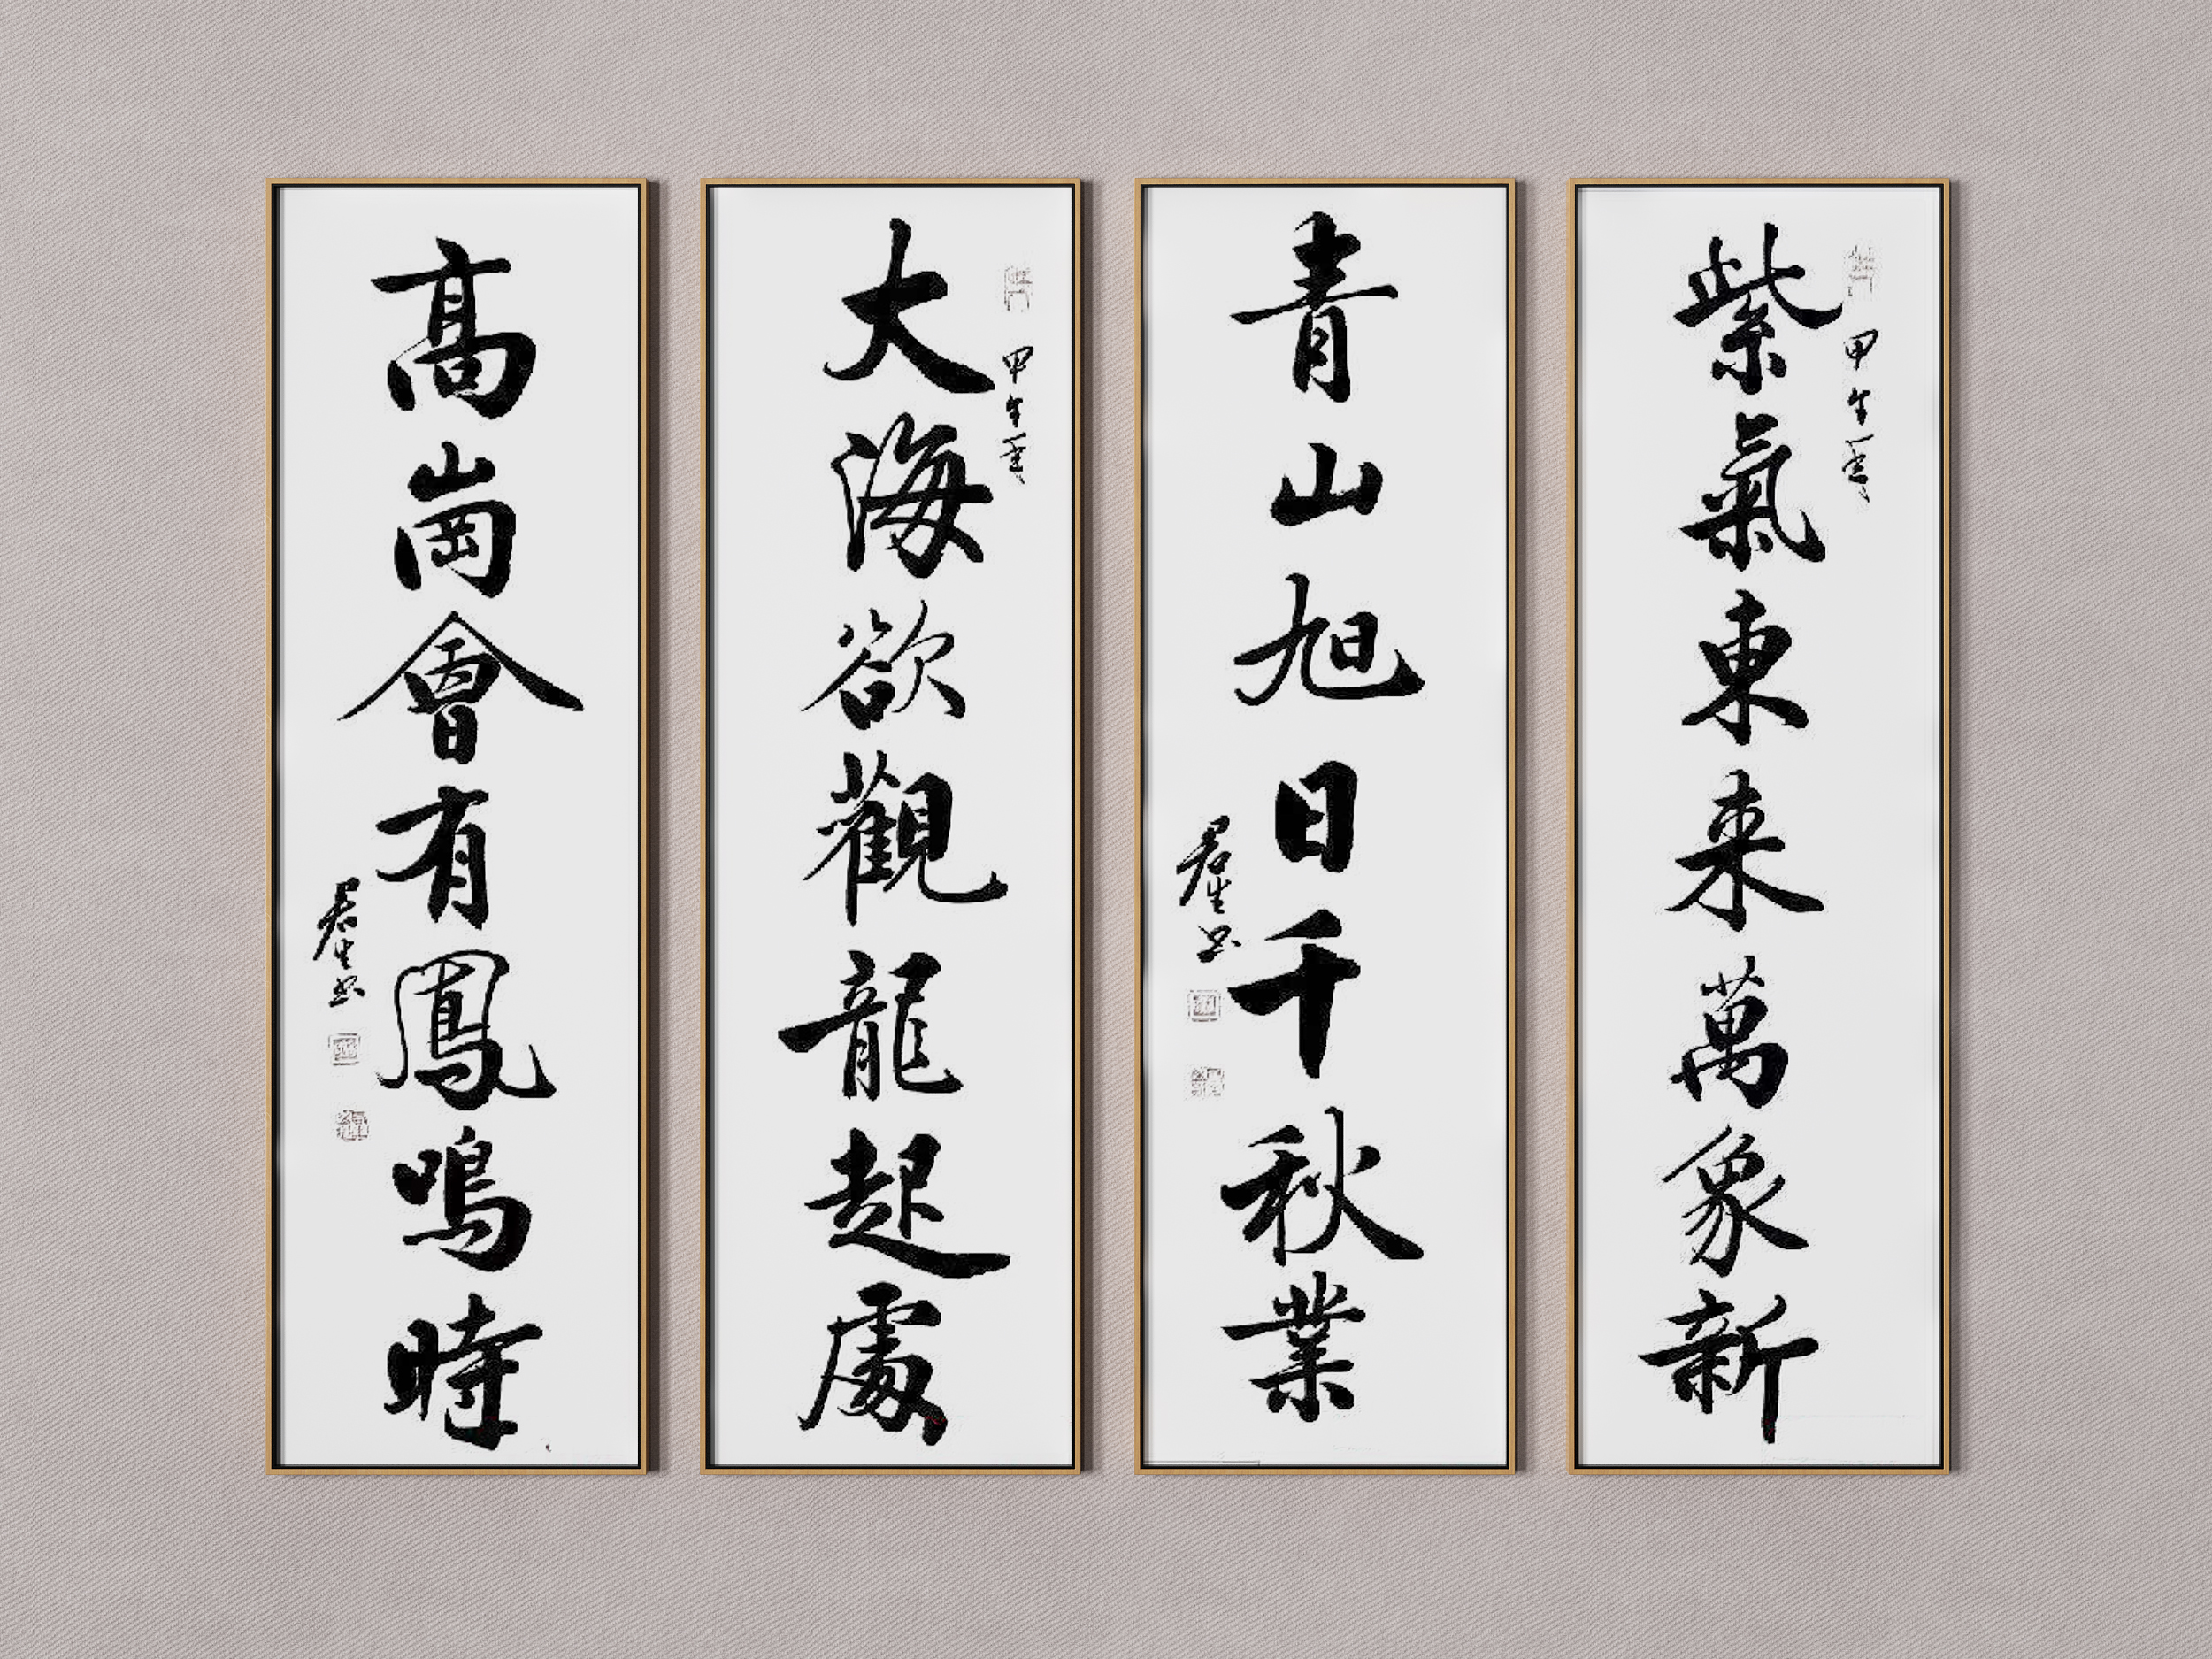 甲午夏
紫氣東来萬象新
青山旭日千秋業
君生书
甲午夏
大海欲觀龍起處
高崗會有鳳鳴時
君生书